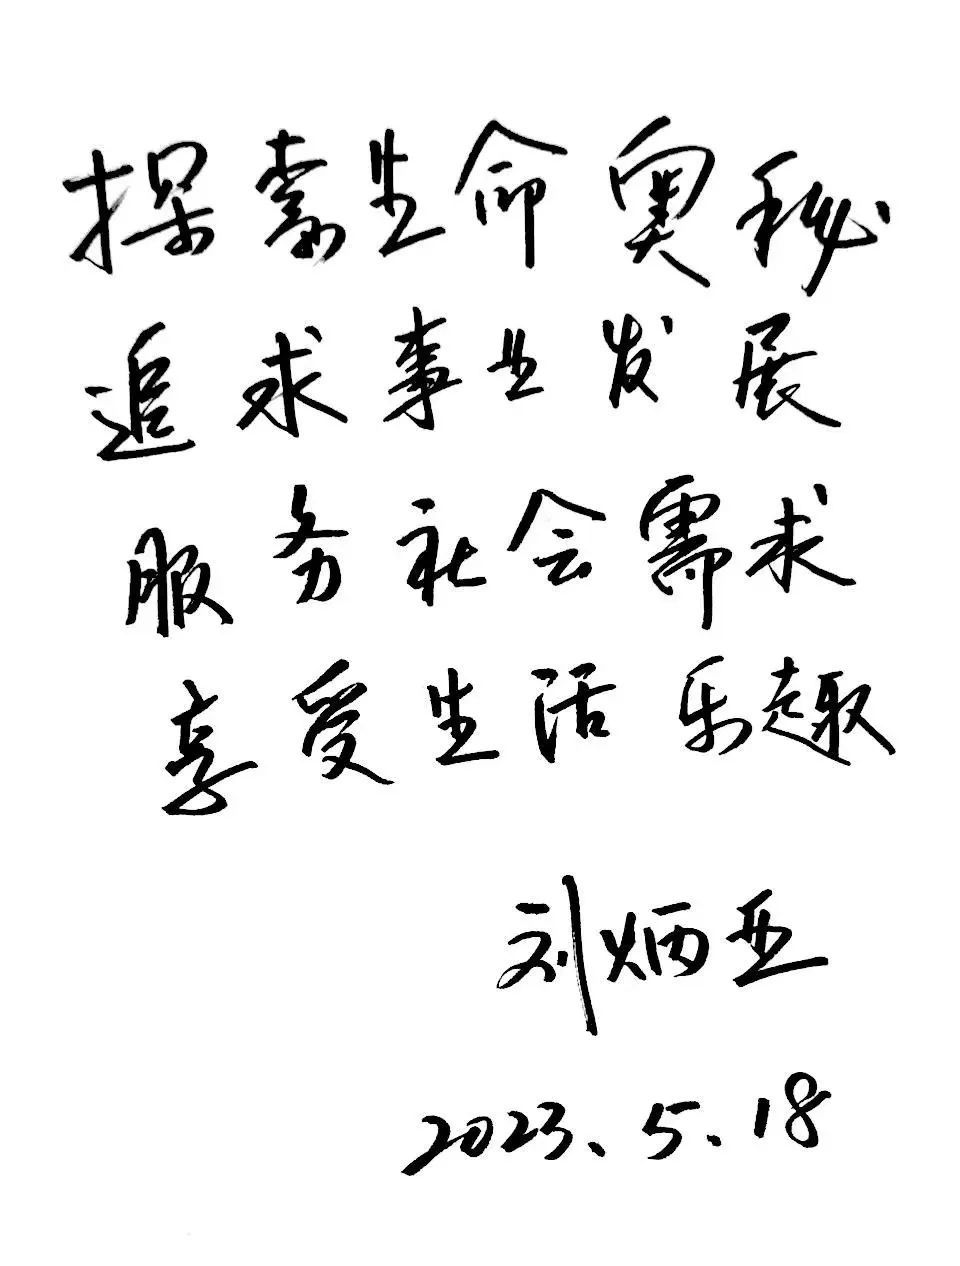 探索生命奥秘
追求事业发展
服务社会需求
享受生活乐趣
刘炳亚
2023.5.18